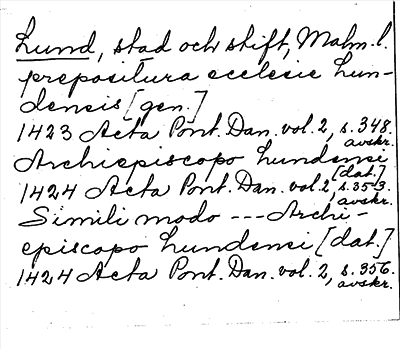 Lund, stad och stift, Malm. l.
prepositura ecclesie Lun-
densis [gen.]
1423 Acta Pont. Dan. vol. 2, s. 348.
avskr.
Archiepiscopo Lundensi
[dat.]
1424 Acta Pont. Dan. vol. 2, s. 353.
avskr.
Simili modo --- Archi-
episcopo Lundensi [dat.]
1424 Acta Pont. Dan. vol. 2, s. 356.
avskr.